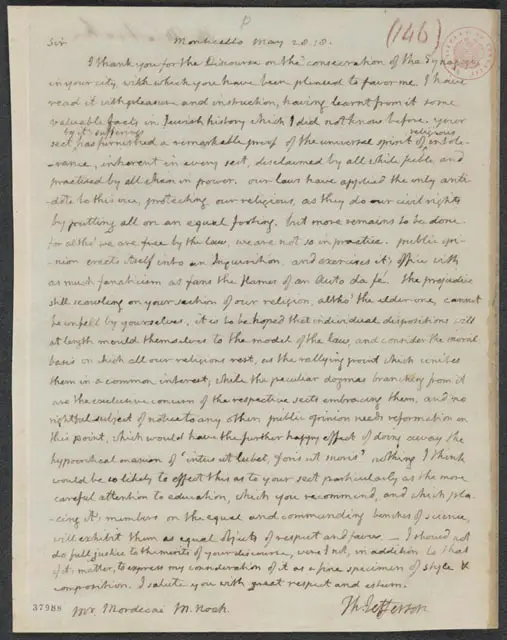 P
(146)
Sir Monticello May 28. 18.
I thank you for the Discourse on the consecration of the Synagogue
in your city, with which you have been pleased to favor me. I have
read it with pleasure and instruction, having learnt from it some
valuable facts in Jewish history which I did not know before. your
by it's sufferings religious
sect has furnished a remarkable proof of the universal spirit of intole-
-rance, inherent in every sect, disclaimed by all while feeble, and
practised by all when in power. our laws have applied the only anti-
dote to this vice, protecting our religious, as they do our civil rights
by putting all on an equal footing. but more remains to be done.
for altho' we are free by the law, we are not so in practice. public opi-
-nion erects itself into an Inquisition, and exercises it's office with
as much fanaticism as fans the flames of an Auto da fé. the prejudice
still scowling on your section of our religion, altho' the elder one, cannot
be unfelt by yourselves, it is to be hoped that individual dispositions will
at length mould themselves to the model of the law, and consider the moral
basis on which all our religions rest, as the rallying point which unites
them in a common interest; while the peculiar dogmas branching from it
are the exclusive concern of the respective sects embracing them, and no
rightful subject of notice to any other. public opinion needs reformation on
this point, which would have the further happy effect of doing away the
hypocritical maxim of 'intus ut lubet, foris ut moris' nothing I think
would be so likely to effect this as to your sect particularly as the more
careful attention to education, which you recommend, and which pla-
cing it's members on the equal and commanding benches of science,
will exhibit them as equal objects of respect and favor. — I should not
do full justice to the merits of your discourse, were I not, in addition to that
of it's matter, to express my consideration of it as a fine specimen of style &
composition. I salute you with great respect and esteem.
Th: Jefferson
37988 Mr. Mordecai M. Noah.